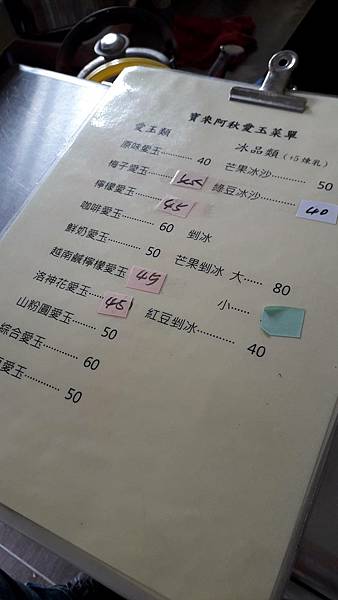 寶來阿秋愛玉菜單
愛玉類
原味愛玉………… 40
梅子愛玉…………
檸檬愛玉………… 45
咖啡愛玉………… 60
鮮奶愛玉………… 50
越南鹹檸檬愛玉 45
洛神花愛玉……… 45
山粉圓愛玉……… 50
綜合愛玉………… 60
愛玉………… 50
冰品類 (+5煉乳)
芒果冰沙………… 50
綠豆冰沙………… 40
剉冰
芒果剉冰 大…… 80
小……
紅豆剉冰………… 40